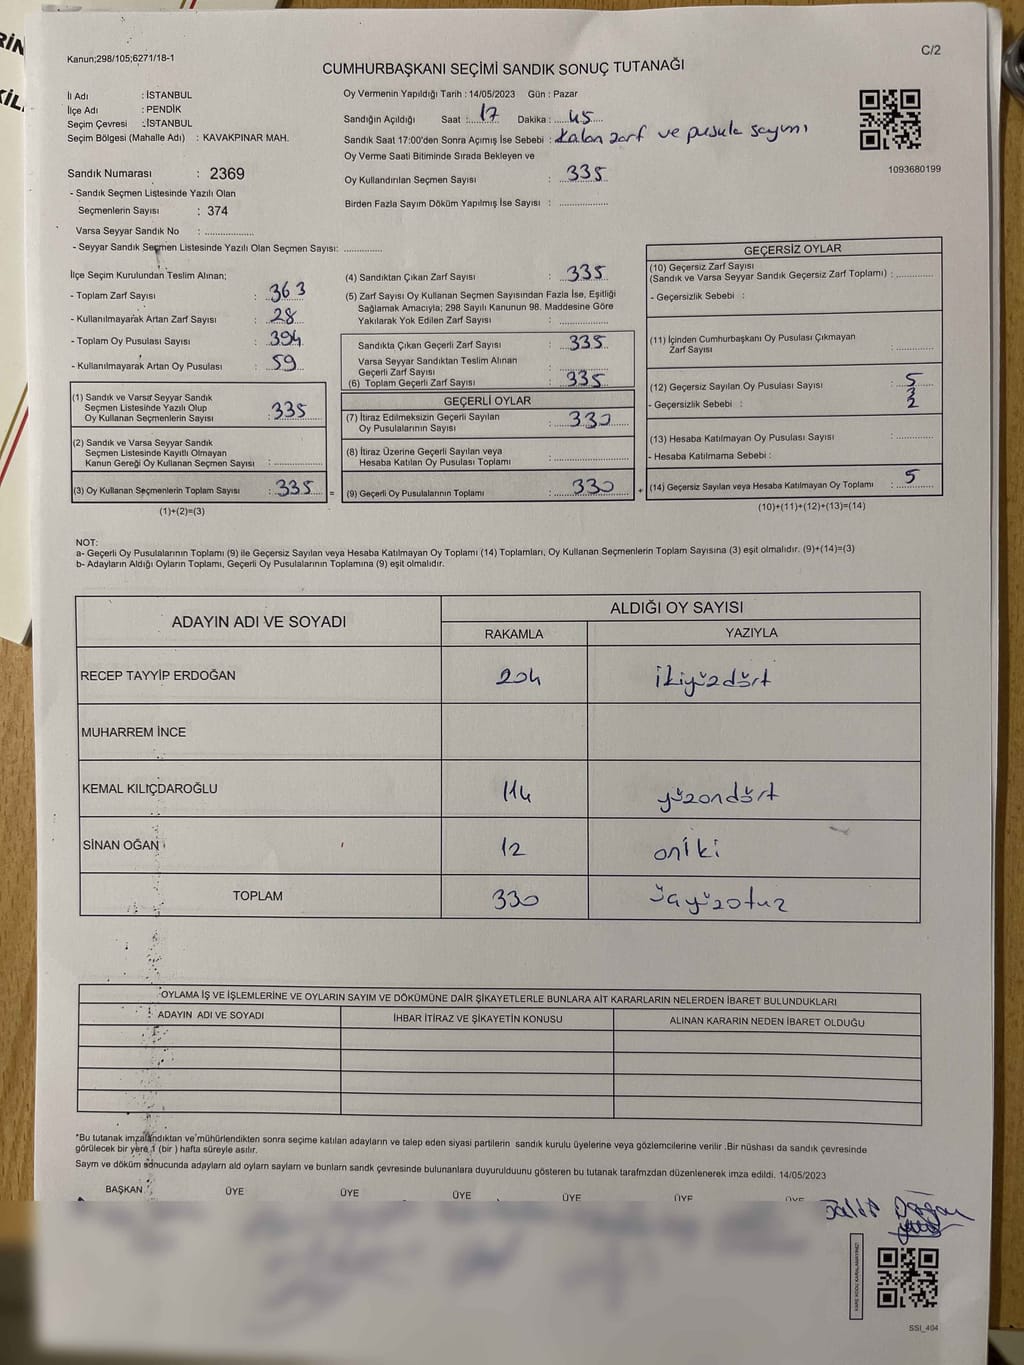 RİN
KİL
Kanun;298/105;6271/18-1
C/2
CUMHURBAŞKANI SEÇİMİ SANDIK SONUÇ TUTANAĞI
İl Adı : İSTANBUL
İlçe Adı : PENDİK
Seçim Çevresi : İSTANBUL
Seçim Bölgesi (Mahalle Adı) : KAVAKPINAR MAH.
Oy Vermenin Yapıldığı Tarih : 14/05/2023 Gün : Pazar
Sandığın Açıldığı Saat : 17 Dakika : 45
Sandık Saat 17:00'den Sonra Açımış İse Sebebi : Kalan zarf ve pusula sayımı
Oy Verme Saati Bitiminde Sırada Bekleyen ve
Oy Kullandırılan Seçmen Sayısı : 335
Birden Fazla Sayım Döküm Yapılmış İse Sayısı :
1093680199
Sandık Numarası : 2369
- Sandık Seçmen Listesinde Yazılı Olan
Seçmenlerin Sayısı : 374
Varsa Seyyar Sandık No :
- Seyyar Sandık Seçmen Listesinde Yazılı Olan Seçmen Sayısı:
İlçe Seçim Kurulundan Teslim Alınan;
- Toplam Zarf Sayısı : 363
- Kullanılmayarak Artan Zarf Sayısı : 28
- Toplam Oy Pusulası Sayısı : 394
- Kullanılmayarak Artan Oy Pusulası : 59
(1) Sandık ve Varsa Seyyar Sandık
Seçmen Listesinde Yazılı Olup
Oy Kullanan Seçmenlerin Sayısı : 335
(2) Sandık ve Varsa Seyyar Sandık
Seçmen Listesinde Kayıtlı Olmayan
Kanun Gereği Oy Kullanan Seçmen Sayısı :
(3) Oy Kullanan Seçmenlerin Toplam Sayısı : 335 =
(1)+(2)=(3)
(4) Sandıktan Çıkan Zarf Sayısı : 335
(5) Zarf Sayısı Oy Kullanan Seçmen Sayısından Fazla İse, Eşitliği
Sağlamak Amacıyla; 298 Sayılı Kanunun 98. Maddesine Göre
Yakılarak Yok Edilen Zarf Sayısı :
Sandıkta Çıkan Geçerli Zarf Sayısı : 335
Varsa Seyyar Sandıktan Teslim Alınan
Geçerli Zarf Sayısı :
(6) Toplam Geçerli Zarf Sayısı : 335
GEÇERLİ OYLAR
(7) İtiraz Edilmeksizin Geçerli Sayılan
Oy Pusulalarının Sayısı : 330
(8) İtiraz Üzerine Geçerli Sayılan veya
Hesaba Katılan Oy Pusulası Toplamı :
(9) Geçerli Oy Pusulalarının Toplamı : 330 +
GEÇERSİZ OYLAR
(10) Geçersiz Zarf Sayısı
(Sandık ve Varsa Seyyar Sandık Geçersiz Zarf Toplamı) :
- Geçersizlik Sebebi :
(11) İçinden Cumhurbaşkanı Oy Pusulası Çıkmayan
Zarf Sayısı :
(12) Geçersiz Sayılan Oy Pusulası Sayısı : 5
3
- Geçersizlik Sebebi : 2
(13) Hesaba Katılmayan Oy Pusulası Sayısı :
- Hesaba Katılmama Sebebi :
(14) Geçersiz Sayılan veya Hesaba Katılmayan Oy Toplamı : 5
(10)+(11)+(12)+(13)=(14)
NOT:
a- Geçerli Oy Pusulalarının Toplamı (9) ile Geçersiz Sayılan veya Hesaba Katılmayan Oy Toplamı (14) Toplamları, Oy Kullanan Seçmenlerin Toplam Sayısına (3) eşit olmalıdır. (9)+(14)=(3)
b- Adayların Aldığı Oyların Toplamı, Geçerli Oy Pusulalarının Toplamına (9) eşit olmalıdır.
ADAYIN ADI VE SOYADI
ALDIĞI OY SAYISI
RAKAMLA YAZIYLA
RECEP TAYYİP ERDOĞAN 204 ikiyüzdört
MUHARREM İNCE
KEMAL KILIÇDAROĞLU 114 yüzondört
SİNAN OĞAN 12 oniki
TOPLAM 330 üçyüzotuz
OYLAMA İŞ VE İŞLEMLERİNE VE OYLARIN SAYIM VE DÖKÜMÜNE DAİR ŞİKAYETLERLE BUNLARA AİT KARARLARIN NELERDEN İBARET BULUNDUKLARI
ADAYIN ADI VE SOYADI İHBAR İTİRAZ VE ŞİKAYETİN KONUSU ALINAN KARARIN NEDEN İBARET OLDUĞU
*Bu tutanak imzalandıktan ve mühürlendikten sonra seçime katılan adayların ve talep eden siyasi partilerin sandık kurulu üyelerine veya gözlemcilerine verilir .Bir nüshası da sandık çevresinde
görülecek bir yere 1 (bir ) hafta süreyle asılır.
Sayım ve döküm sonucunda adayların aldı oyların sayların ve bunların sandk çevresinde bulunanlara duyurulduunu gösteren bu tutanak tarafmzdan düzenlenerek imza edildi. 14/05/2023
BAŞKAN ÜYE ÜYE ÜYE ÜYE ÜYE ÜYE
Doğan
SSI_404